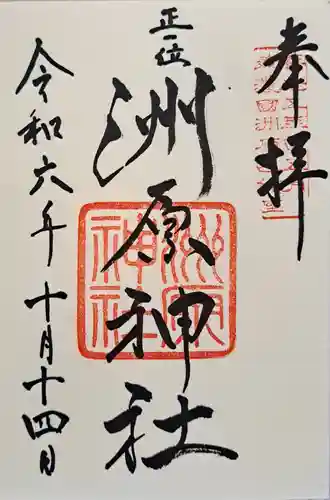 奉拝
正一位
洲原神社
令和六年十月十四日
洲原
神社